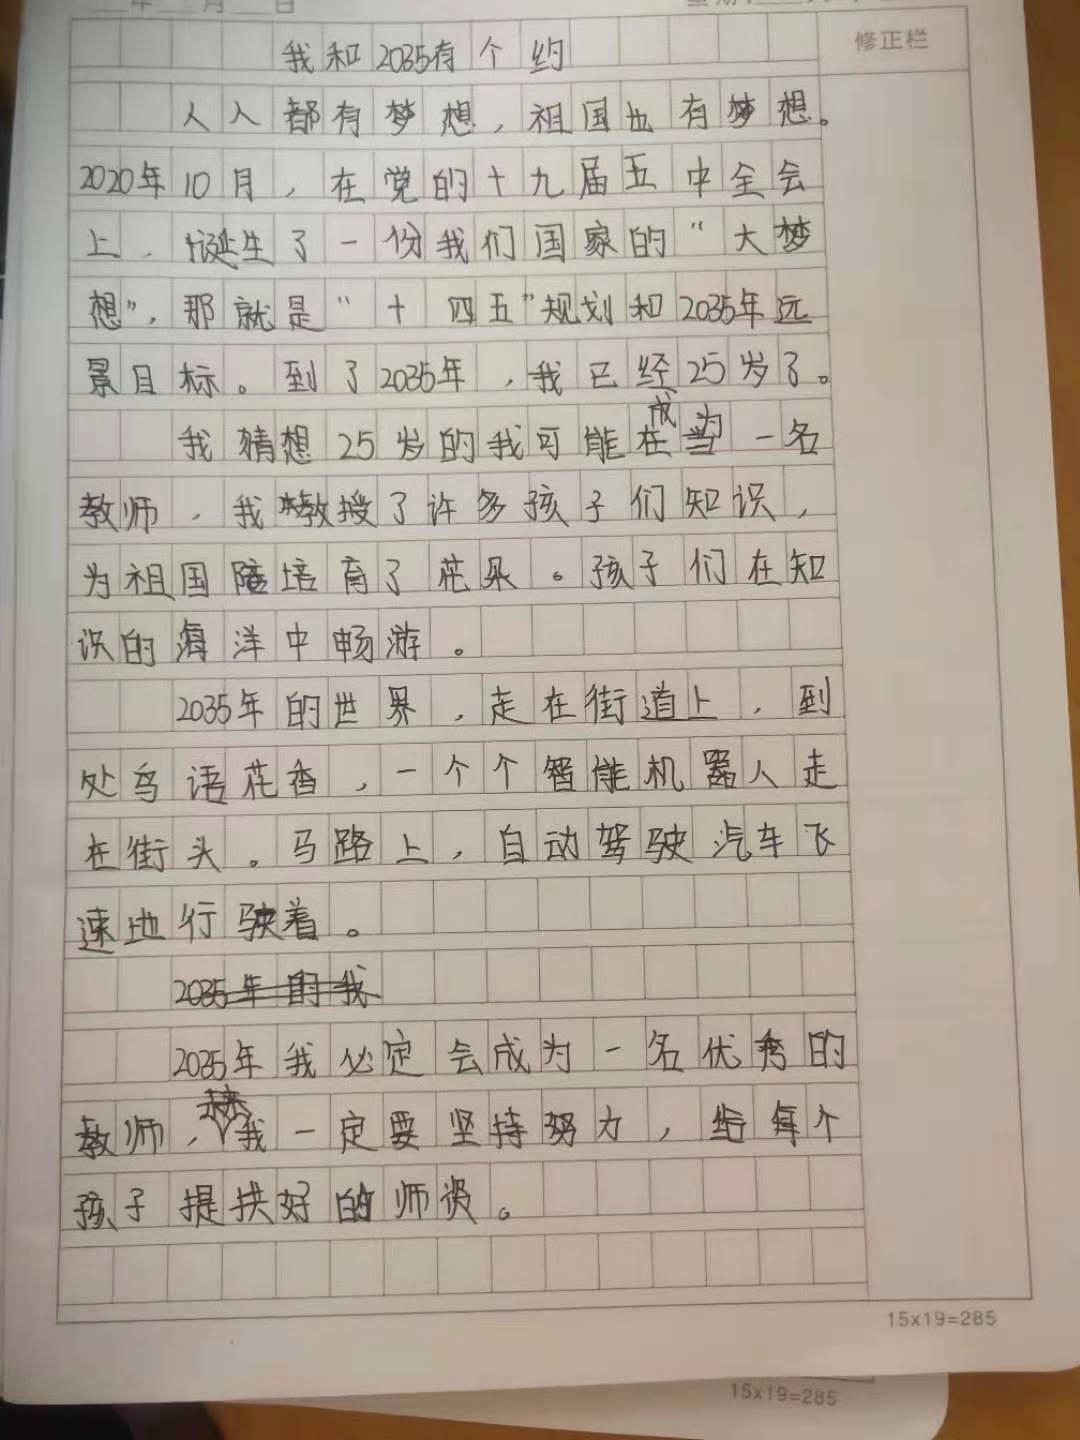 年 月 日
修正栏
我和2035有个约
人人都有梦想,祖国也有梦想。
2020年10月,在党的十九届五中全会
上,诞生了一份我们国家的“大梦
想”,那就是“十四五”规划和2035年远
景目标。到了2035年,我已经25岁了。
我猜想25岁的我可能在成为一名
教师,我教授了许多孩子们知识,
为祖国培育了花朵。孩子们在知
识的海洋中畅游。
2035年的世界,走在街道上,到
处鸟语花香,一个个智能机器人走
在街头。马路上,自动驾驶汽车飞
速地行驶着。
2035年的我
2035年我必定会成为一名优秀的
教师,我一定要坚持努力,给每个
孩子提供好的师资。
15x19=285
15x19=285